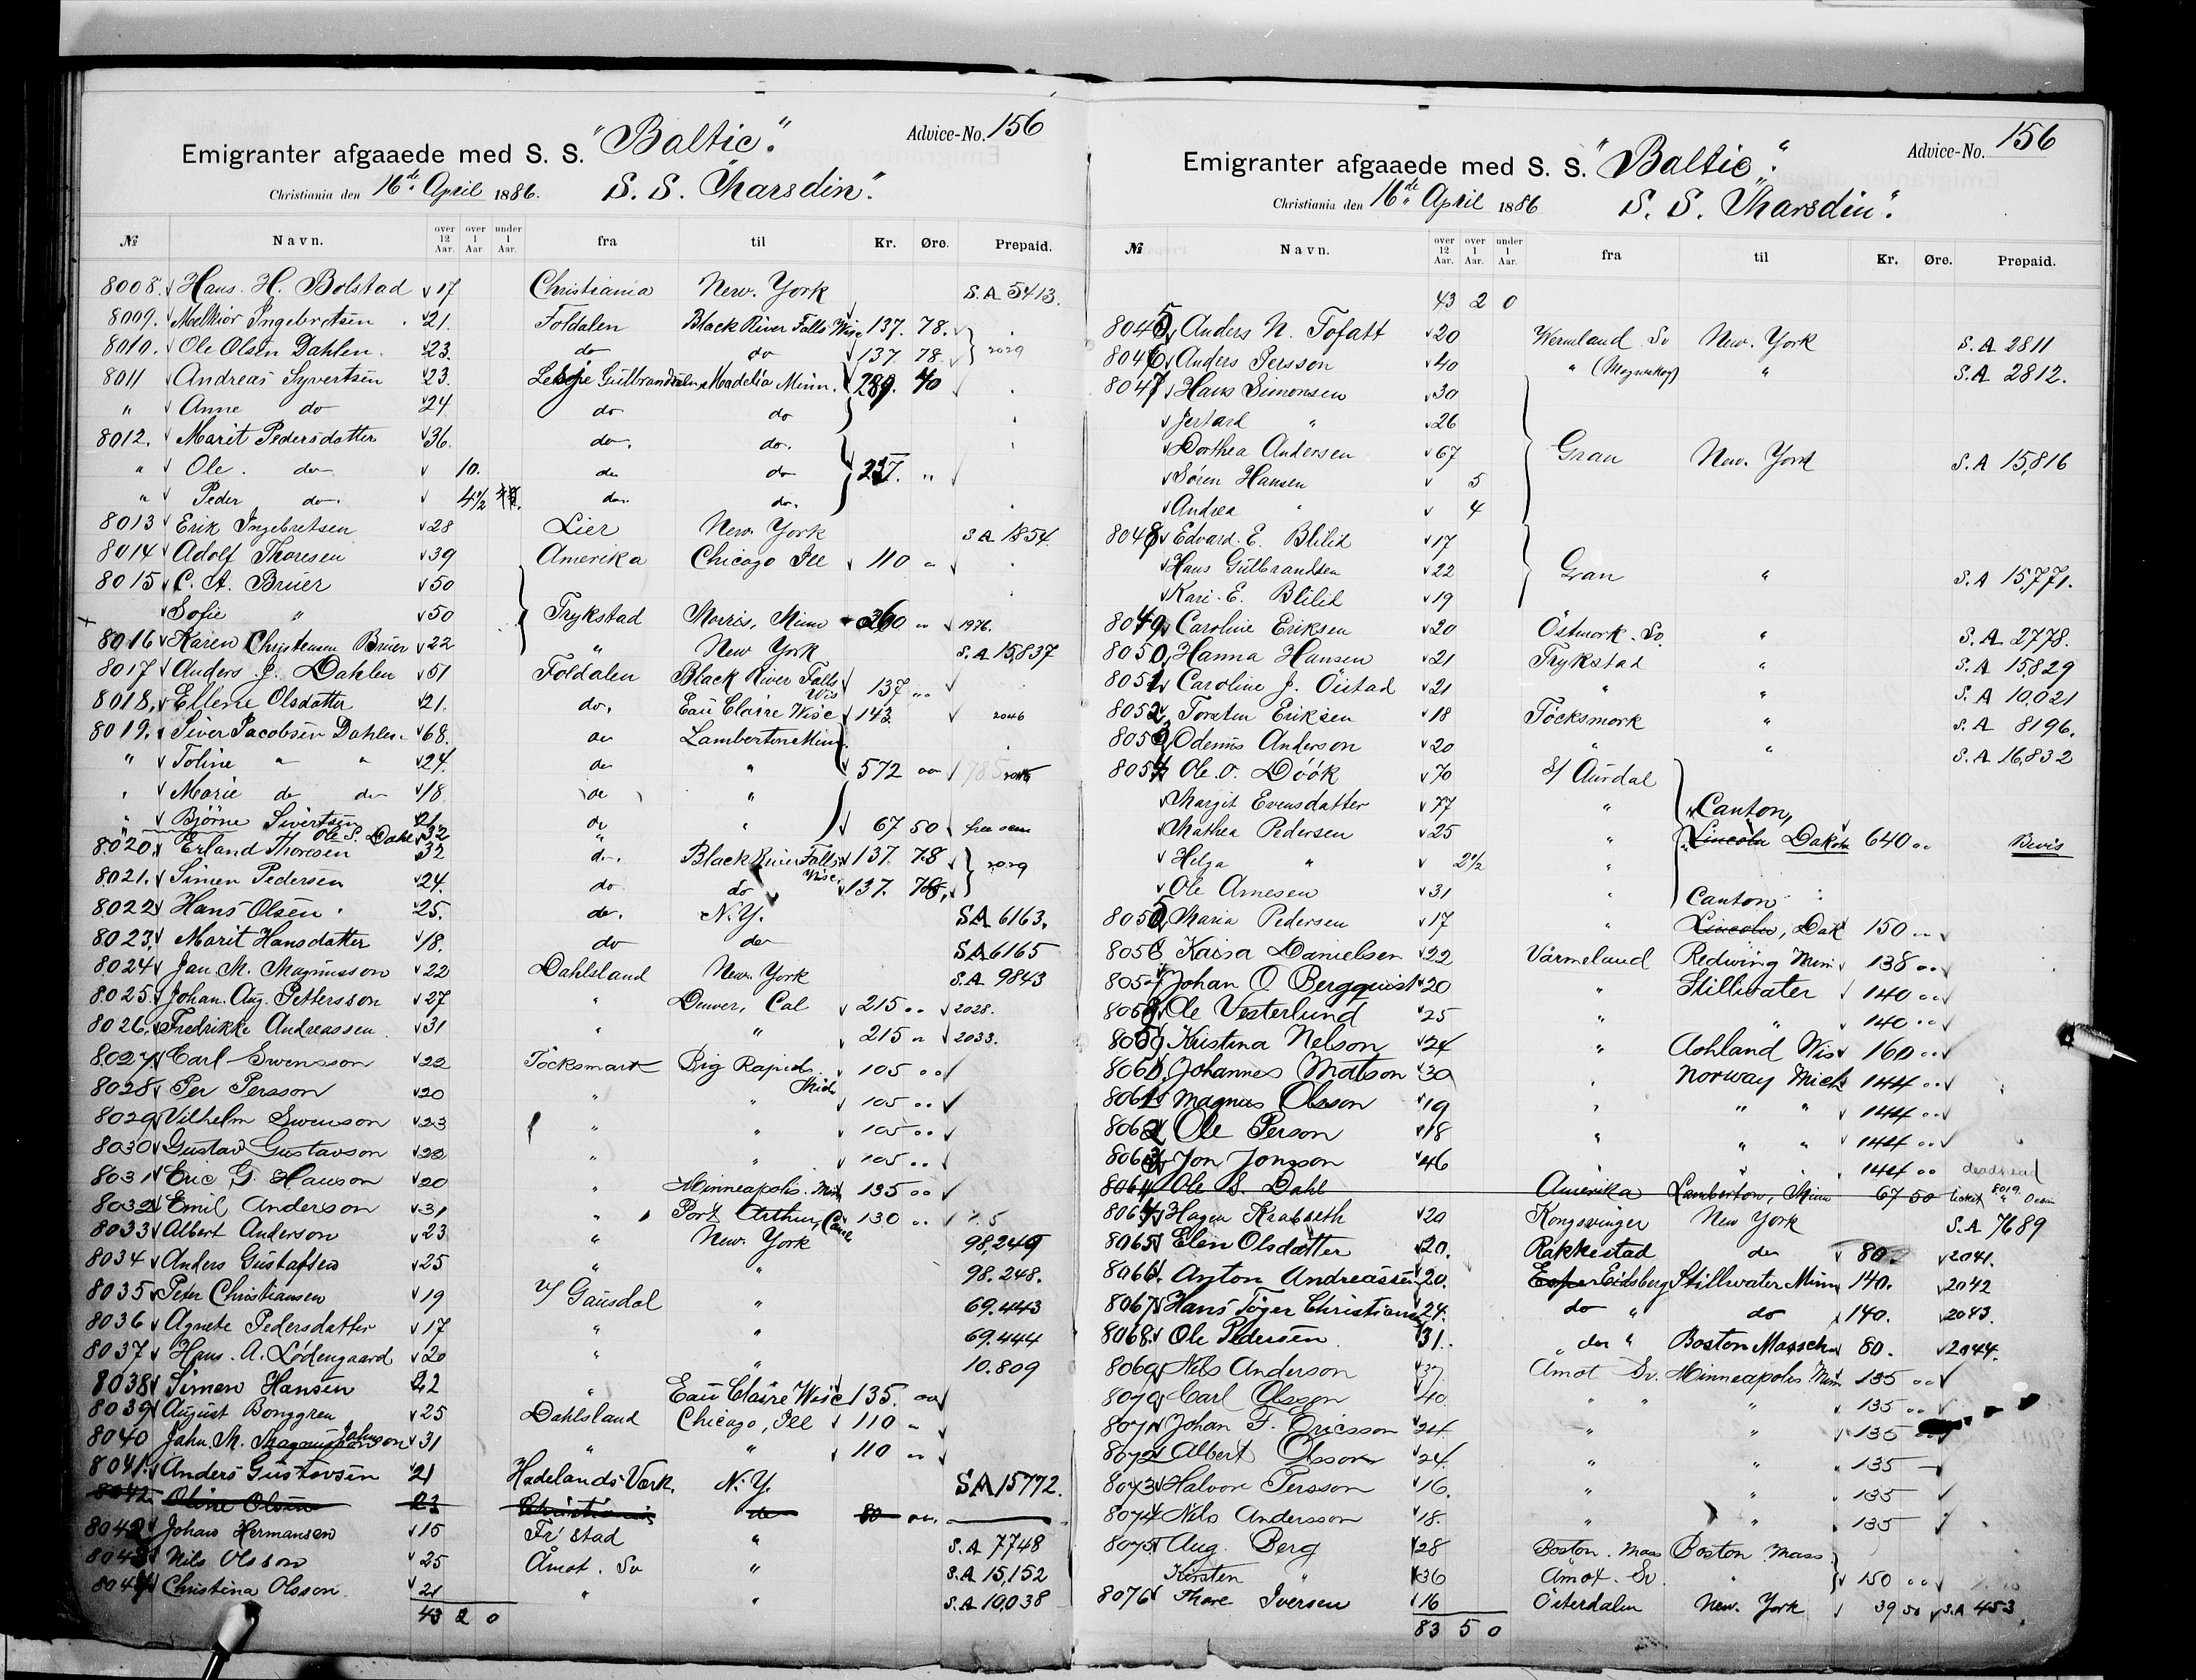 Advice-No. 156
Emigranter afgaaede med S. S. "Baltic".
Christiania den 16de April 1886. S. S. Marsdin".
№ Navn. over 12 Aar. over 1 Aar under 1 Aar. fra til Kr. Øre. Prepaid.
8008. Hans. H. Bolstad 17 Christiania New. York S.A 5413.
8009. Melkior Ingebretsen 21. Foldalen Black River Falls Wisc 137. 78.
8010. Ole Olsen Dahlen. 23. do do 137 78 2029
8011 Andreas Syvertsen 23. Gulbrandsdalen Madelia Minn. 289. 40
" Anne do 24 do do
8012. Marit Pedersdatter 36. do. do.
" Ole. do 10. do do 237. "
" Peder do. 4½ do. do.
8013 Erik Ingebretsen 28 Lier New. York S A 1854.
8014 Adolf Thoresen 39 Amerika Chicago Ill 110 "
8015 C. A. Bruer 50
Sofie " 50 Trykstad Morris, Minn 260 " 1976.
8016 Karen Christensen Bruer 22 " New York S.A 15,837
8017 Anders J. Dahlen 51 Foldalen Black River Falls Wis 137 ..
8018. Ellene Olsdatter 21. do. Eau Claire Wisc 143. 2046
8019. Siver Jacobsen Dahlen 68. do Lamberton Minn.
" Toline " " 24. do " 572 oo
" Marie do do 18 do "
" Bjørne Sivertsen 21 do " 67 50 free ocean
" Ole S. Dahl 32 "
8020. Erland Thoresen 32 do. Black River Falls Wisc. 137. 78 2029
8021. Simen Pedersen 24. do do 137. 78.
8022 Hans Olsen 25. do. N.Y. SA 6163.
8023. Marit Hansdatter 18. do do SA 6165
8024 Jan M. Magnusson 22 Dahlsland New. York S.A 9843
8025. Johan. Aug. Pettersson 27 " Denver, Cal 215 .. 2028.
8026. Fredrikke Andreassen 31 " " 215 " 2033.
8027 Carl Swensson 22 Töcksmark Big Rapids. Mich 105 oo
8028 Per Persson 20 " " 105 ..
8029 Vilhelm Swenson 23 " " 105 ..
8030 Gustav Gustavson 22 " " 105 ..
8031 Eric G. Hanson 20 " Minneapolis. Min 135 oo
8032 Emil Anderson 31 " Port Arthur, Can 130 ..
8033 Albert Anderson 23 " New. York 98,249
8034 Anders Gustafsen 25 " " 98.248.
8035 Peter Christiansen 19 V/ Gausdal " 69.443
8036 Agnete Pedersdatter 17 " " 69.444
8037 Hans. A. Lödengaard 20 " " 10.809
8038 Simen Hansen 22 " Eau Claire Wisc 135. oo
8039 August Bonggren 25 Dahlsland Chicago, Ill 110 "
8040 Jahn. M. Magnusson Johnson 31 " " 110 "
8041. Anders Gustavsen 21 Hadelands Værk. N.Y. SA 15772.
8042. Oline Olsen 23 Christiania do 80 oo.
8042 Johan Hermansen 15 Fr'stad " S.A 7748
8043 Nils Olsson 25 Åmot. Sv " S.A 15,152
8044 Christina Olsson 21 " " S.A 10,038
43 2 0
Advice-No. 156
Emigranter afgaaede med S. S. "Baltic".
Christiania den 16de April 1886 S. S. Marsdin".
№ Navn. over 12 Aar. over 1 Aar. under 1 Aar. fra til Kr. Øre. Prepaid.
43 2 0
8045 Anders N. Tofatt 20 Wermland Sv New. York S.A 2811
8046 Anders Persson 40 " " S.A 2812.
8047 Hans Simonsen 30
" 26
Dorthea Andersen 67 Gran New. York S.A 15,816
Sören Hansen 5
Andrea " 4
8048 Edvard. E. Blilid 17
Hans Gulbrandsen 22 Gran " S.A 15,771.
Kari. E. Blilid 19
8049 Caroline Eriksen 20 Östmork. Sv. " S.A. 2778.
8050 Hanna Hansen 21 Trykstad " S.A 15,829
8051 Caroline J. Öistad 21 " " S.A 10,021
8052 Torsten Eriksen 18 Töcksmork " S.A 8196.
8053 Odenius Anderson 20 " " S.A 16,832
8054 Ole. O. Döök 70 S/ Aurdal
Margit Evensdatter 77 " Canton,
Mathea Pedersen 25 " Lincoln Dakota 640 .. Bevis
Helga " 2½ "
Ole Arnesen 31 " Canton
8055 Maria Pedersen 17 " Lincoln, Dak 150 ..
8056 Kaisa Danielsen 22 Värmeland Redwing Minn 138 ..
8057 Johan O Bergquist 20 " Stillwater 140 ..
8058 Ole Vesterlund 25 " " 140 ..
8059 Kristina Nelson 24 " Ashland Wis 160 ..
8060. Johannes Matson 30 " Norway Mich 144 ..
8061 Magnus Olsson 19 " " " 144 ..
8062 Ole Person 18 " " " 144 ..
8063 Jon Jonsson 46 " 144 .. deadhead
8064 Ole S. Dahl Amerika Lamberton, Minn 67 50 ticket 8019. Ocean
8064 Hagen Krabseth 20 Kongsvinger New York S.A 7689
8065 Elen Olsdatter 20. Rakkestad do 80 2041.
8066. Anton Andreassen 20. Eidsberg Stillwater Minn 140. 2042
8067 Hans Töger Christiansen 24. do " do 140. 2043.
8068. Ole Pedersen 31. " do " Boston Massch 80. 2044.
8069 Nils Anderson 37. Amot Sv. Minneapolis Min 135 ..
8070 Carl Olsson 40. " " " 135 ..
8071 Johan F. Ericsson 24. " " 135 ..
8072 Albert Olsson 24. " " 135
8073 Halvor Persson 16. " " 135
8074 Nils Andersson 18. " " 135
8075 Aug. Berg 28 Boston. Mass Boston Mass
Kirsten " 36 Åmot. Sv. " 150 ..
8076 Thore Iversen 16 Österdalen New. York 39 50 S.A 453
83 5 0